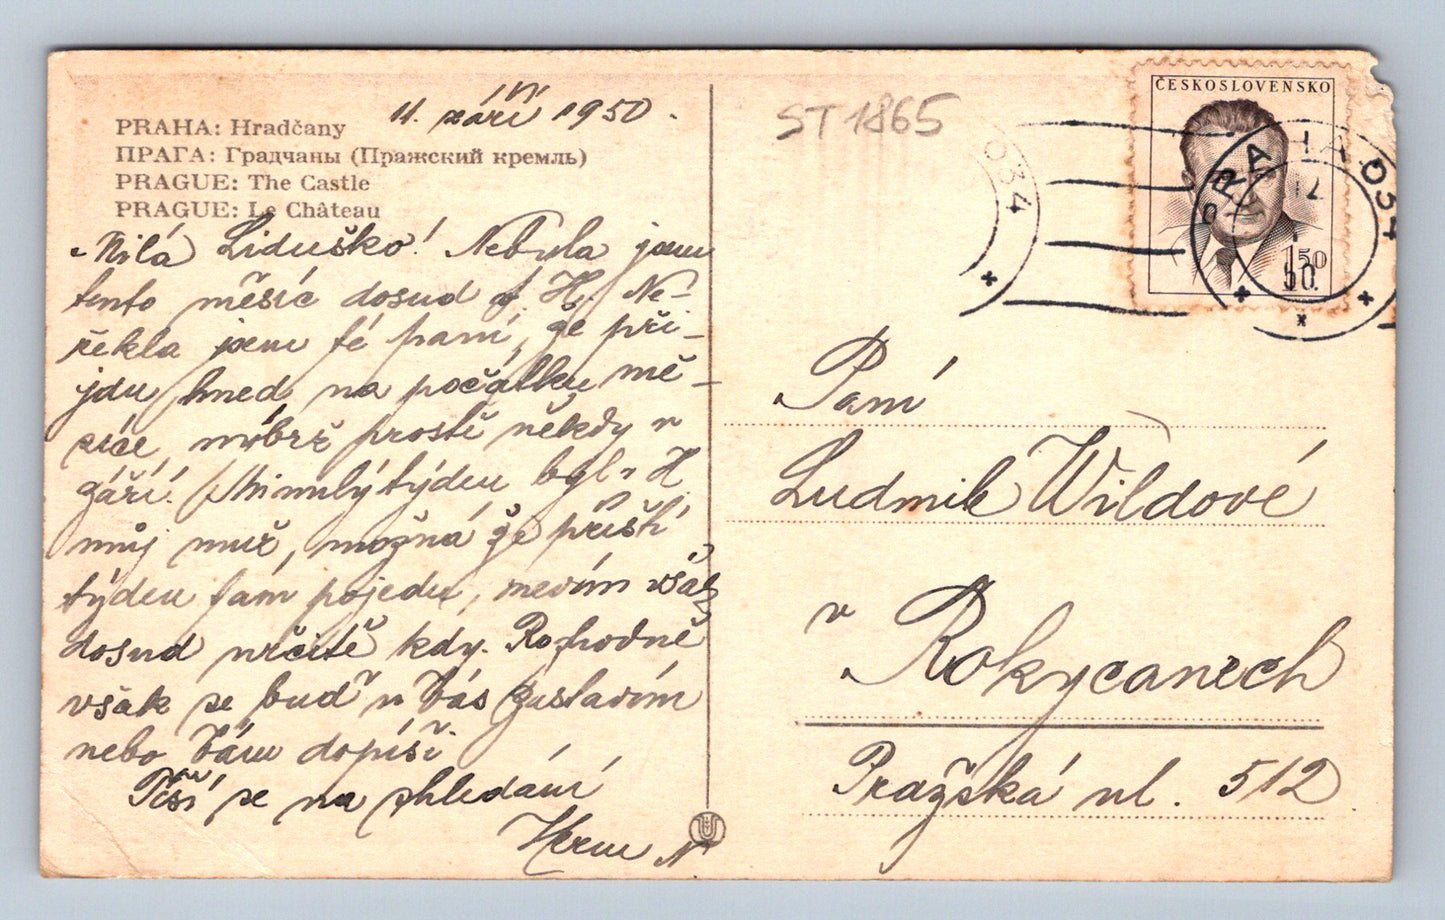 11. září 1950.
PRAHA: Hradčany
ПРАГА: Градчаны (Пражский кремль)
PRAGUE: The Castle
PRAGUE: Le Château
Milá Liduško! Nebyla jsem
tento měsíc dosud v H. Ne-
řekla jsem té paní, že při-
jdu hned na počátku mě-
síce, nýbrž prostě někdy v
září. Minulý týden byl v H.
můj muž, možná že příští
týden tam pojedu, nevím však
dosud určitě kdy. Rozhodně
však se buď u Vás zastavím
nebo Vám dopíši.
Těší se na shledání
ST 1865
ČESKOSLOVENSKO
1.50
PRAHA 034
034
Paní
Ludmila Wildové
v Rokycanech
Pražská ul. 512